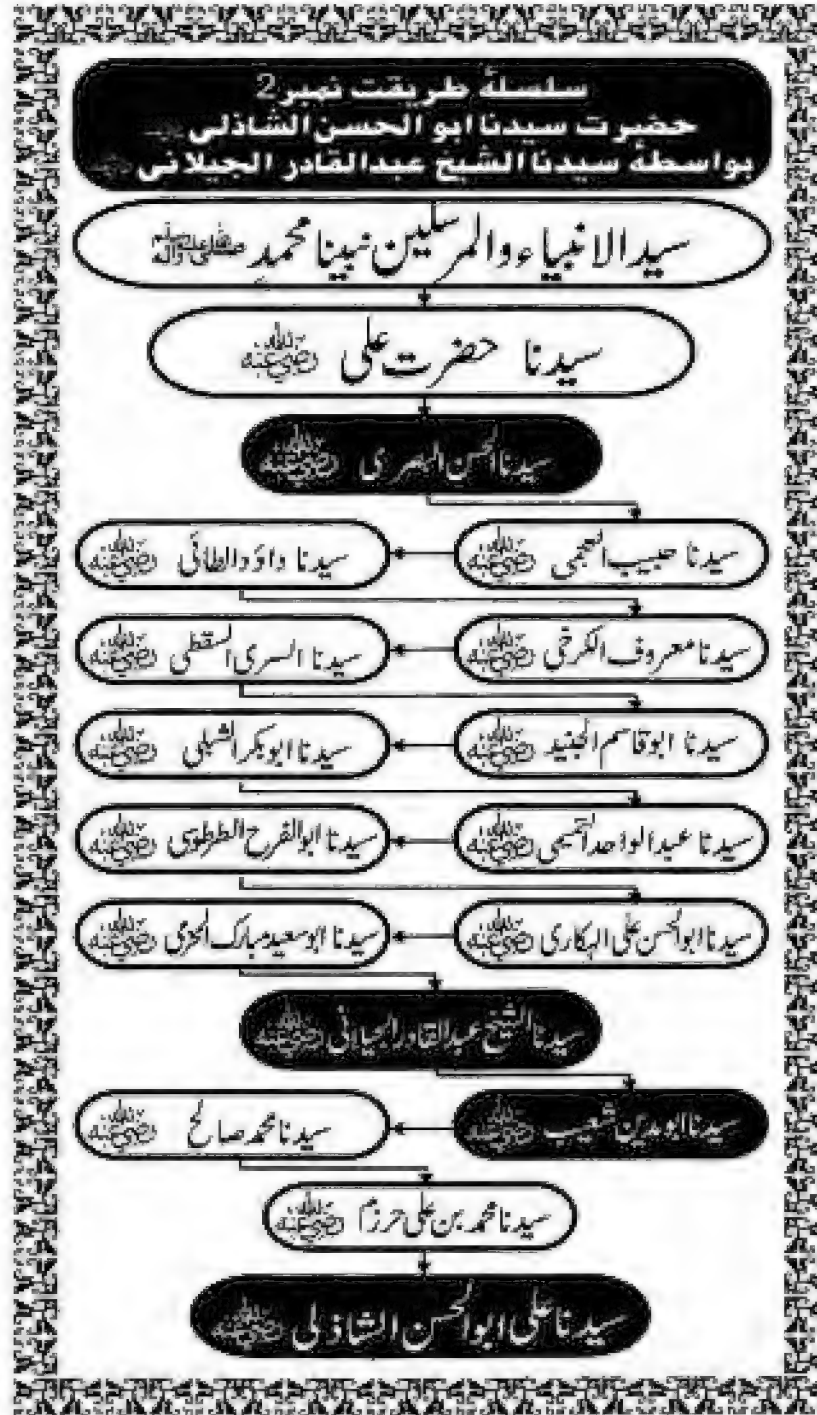 سلسلۂ طریقت نمبر2
حضرت سیدنا ابو الحسن الشاذلی
بواسطۂ سیدنا الشیخ عبدالقادر الجیلانی
سید الانبیاء والمرسلین نبینا محمد ﷺ
سیدنا حضرت علی رضی اللہ عنہ
سیدنا الحسن البصری رضی اللہ عنہ
سیدنا حبیب العجمی رضی اللہ عنہ
سیدنا داؤد الطائی رضی اللہ عنہ
سیدنا معروف الکرخی رضی اللہ عنہ
سیدنا السری السقطی رضی اللہ عنہ
سیدنا ابو قاسم الجنید رضی اللہ عنہ
سیدنا ابوبکر الشبلی رضی اللہ عنہ
سیدنا عبدالواحد التمیمی رضی اللہ عنہ
سیدنا ابوالفرح الطرطوسی رضی اللہ عنہ
سیدنا ابوالحسن علی الہکاری رضی اللہ عنہ
سیدنا ابو سعید مبارک الحزمی رضی اللہ عنہ
سیدنا الشیخ عبدالقادر الجیلانی رضی اللہ عنہ
سیدنا ابو مدین شعیب رضی اللہ عنہ
سیدنا محمد صالح رضی اللہ عنہ
سیدنا محمد بن علی حرزم رضی اللہ عنہ
سیدنا علی ابوالحسن الشاذلی رضی اللہ عنہ